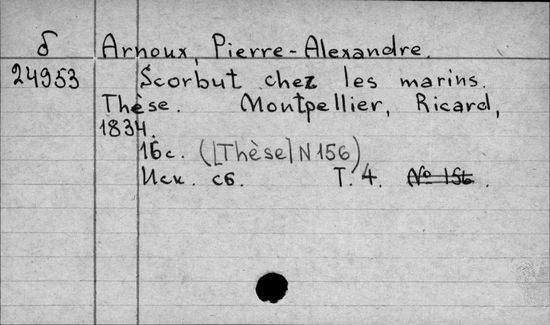 δ Arnoux, Pierre-Alexandre.
24953 Scorbut chez les marins.
Thèse. Montpellier, Ricard,
1834.
16с. ([Thèse] N 156)
Иск. сб. Т. 4. № 156.